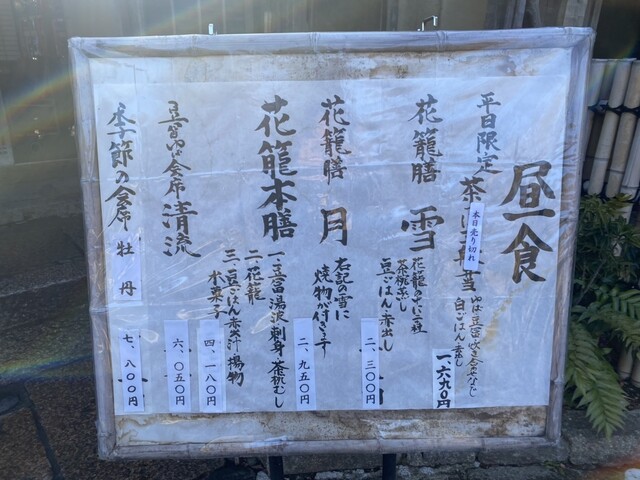 昼食
平日限定
茶
本日売り切れ
ゆば豆富炊き合せなし
白ごはん赤出し
一、六九〇円
花籠膳 雪
茶碗蒸し
豆ごはん赤出し
二、三〇〇円
花籠膳 月
右記の雪に
焼物が付きます
二、九五〇円
花籠本膳
一、豆冨 湯波 刺身 茶碗むし
二、花籠
三、豆ごはん 赤出汁 揚物
水菓子
四、一八〇円
豆冨ゆば会席 清流
六、〇五〇円
季節の会席 牡丹
七、八〇〇円